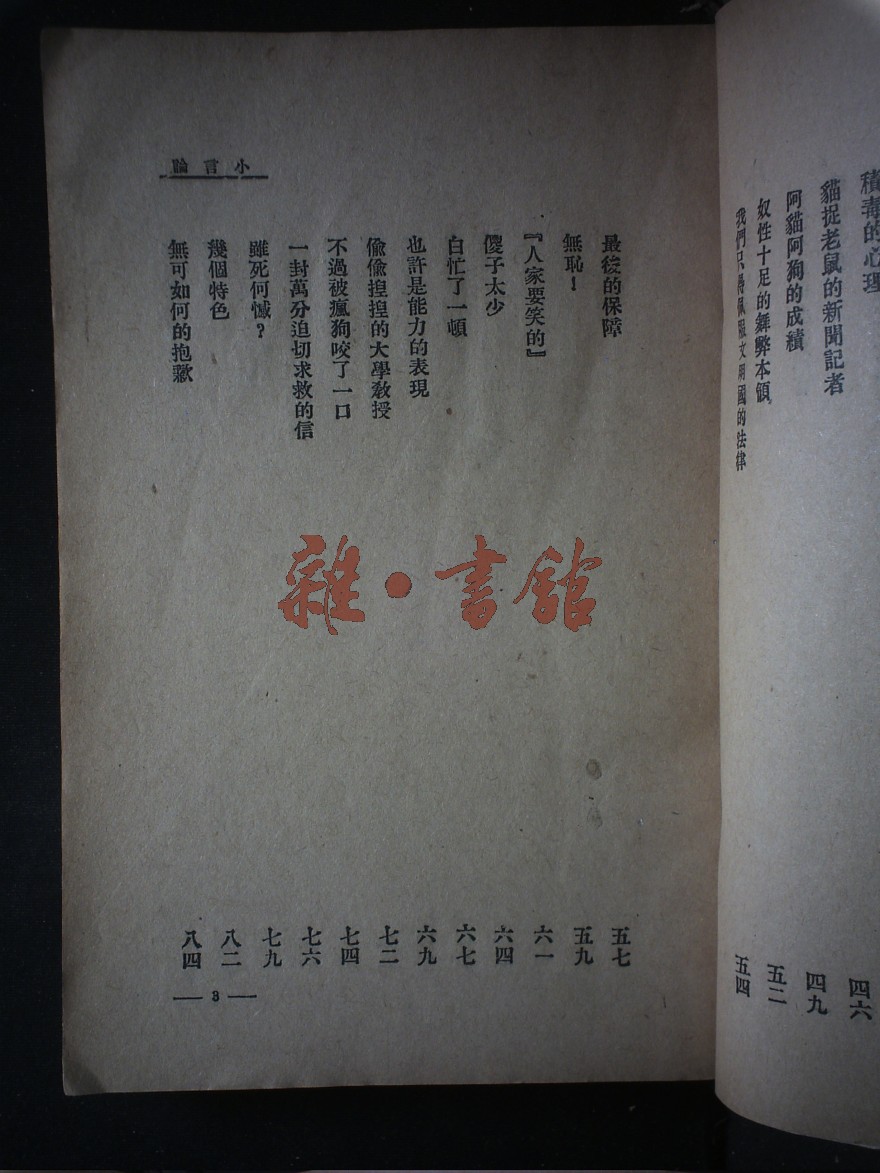 積毒的心理
貓捉老鼠的新聞記者
阿貓阿狗的成績 四六
奴性十足的舞弊本領 四九
我們只得佩服文明國的法律 五二
五四
小言論
最後的保障 五七
無恥！ 五九
『人家要笑的』 六一
傻子太少 六四
白忙了一頓 六七
也許是能力的表現 六九
偷偷揘揘的大學教授 七二
不過被瘋狗咬了一口 七四
一封萬分迫切求救的信 七六
雖死何憾？ 七九
幾個特色 八二
無可如何的抱歉 八四
— 3 —
雜·書館